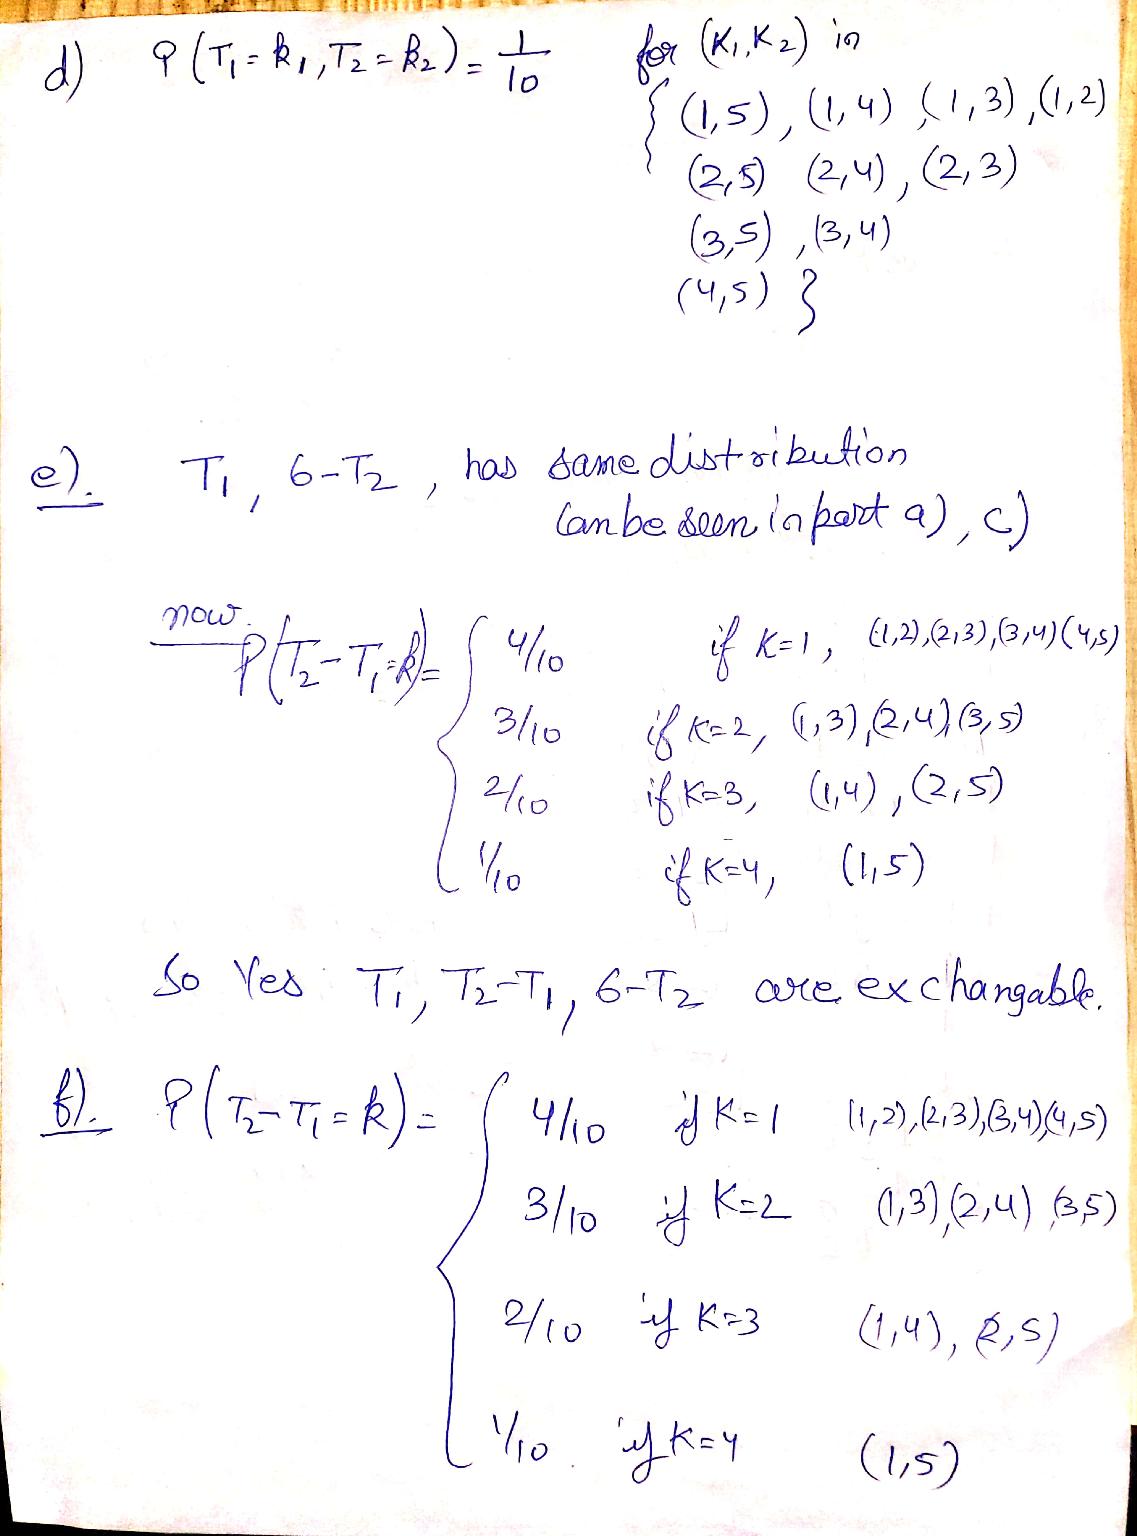 d) P(T₁=k₁,T₂=k₂)=1/10 for (K₁,K₂) in
{(1,5), (1,4), (1,3), (1,2)
(2,5) (2,4), (2,3)
(3,5), (3,4)
(4,5) }
e). T₁, 6-T₂, has same distribution
Can be seen in part a), c)
now. P(T₂-T₁=k)= { 4/10 if K=1, (1,2),(2,3),(3,4)(4,5)
3/10 if K=2, (1,3),(2,4),(3,5)
2/10 if K=3, (1,4), (2,5)
1/10 if K=4, (1,5)
So Yes T₁, T₂-T₁, 6-T₂ are exchangable.
f). P(T₂-T₁=k)= { 4/10 if K=1 (1,2),(2,3),(3,4),(4,5)
3/10 if K=2 (1,3),(2,4) (3,5)
2/10 if K=3 (1,4), (2,5)
1/10. if K=4 (1,5)